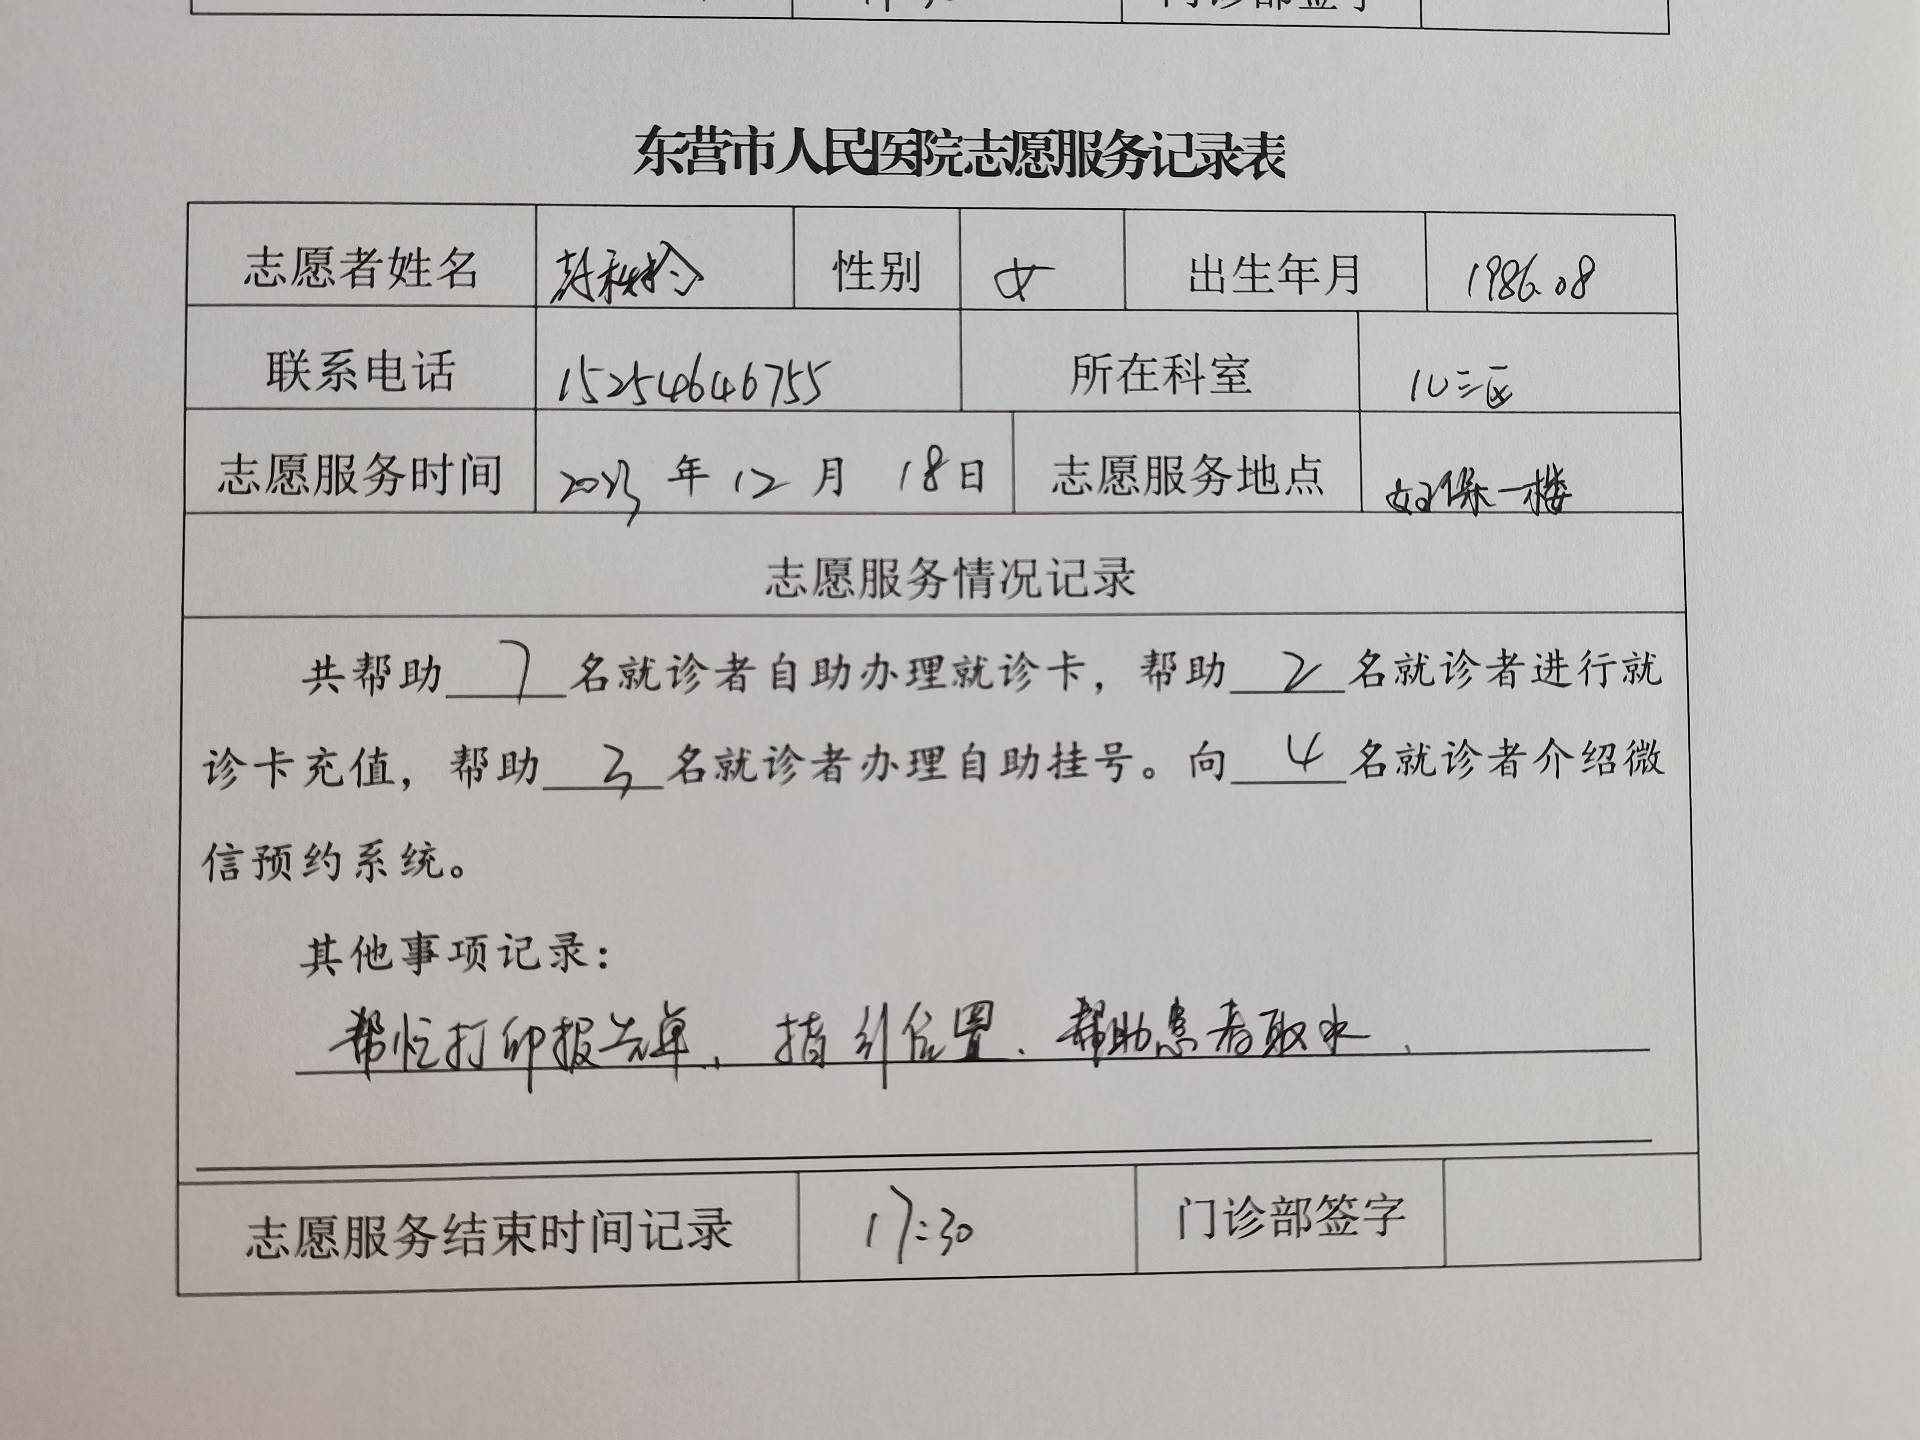 门诊部签字
东营市人民医院志愿服务记录表
志愿者姓名 性别 女 出生年月 1986.08
联系电话 15254646755 所在科室 儿三区
志愿服务时间 2023年12月18日 志愿服务地点 妇保一楼
志愿服务情况记录
共帮助7名就诊者自助办理就诊卡，帮助2名就诊者进行就
诊卡充值，帮助3名就诊者办理自助挂号。向4名就诊者介绍微
信预约系统。
其他事项记录：
帮忙打印报告单、指引位置、帮助患者取水、
志愿服务结束时间记录 17:30 门诊部签字